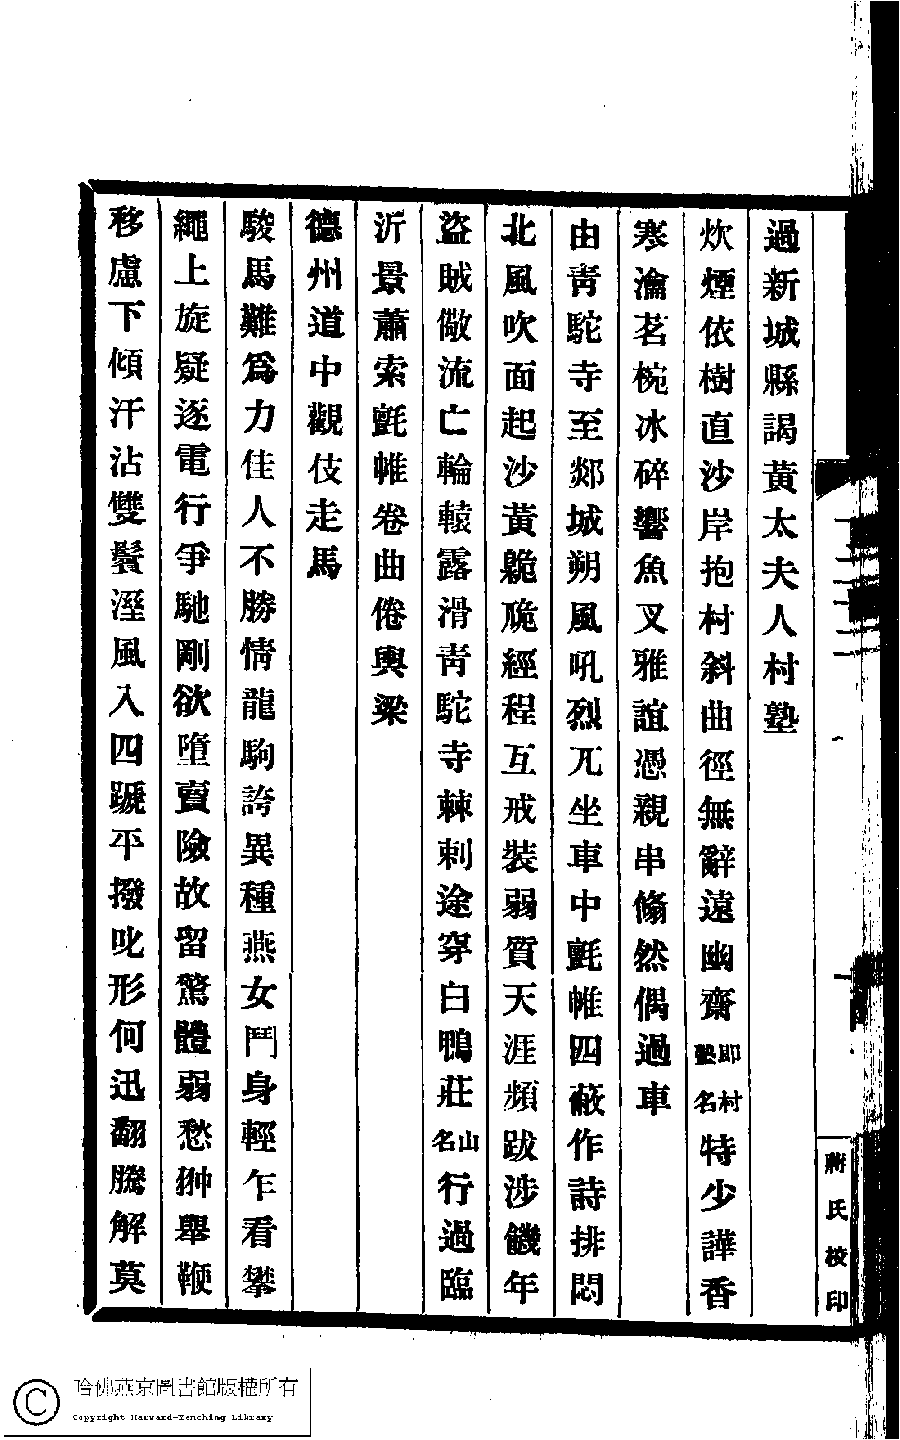 過新城縣謁黃太夫人村塾
炊煙依樹直沙岸抱村斜曲徑無辭遠幽齋即村塾名特少譁香
寒瀹茗椀冰碎響魚叉雅誼憑親串翛然偶過車
由青駝寺至郯城朔風吼烈兀坐車中氈帷四蔽作詩排悶
北風吹面起沙黃臲卼經程互戒裝弱質天涯頻跋涉饑年
盜賊儆流亡輪轅露滑青駝寺棘刺途穿白鴨莊山名行過臨
沂景蕭索氈帷卷曲倦輿梁
德州道中觀伎走馬
駿馬難為力佳人不勝情龍駒誇異種燕女鬥身輕乍看攀
繩上旋疑逐電行爭馳剛欲墮賣險故留驚體弱愁翀舉鞭
移慮下傾汗沾雙鬢溼風入四蹏平撥叱形何迅翻騰解莫
蔣氏校印
哈佛燕京圖書館版權所有
Copyright Harvard-Yenching Library